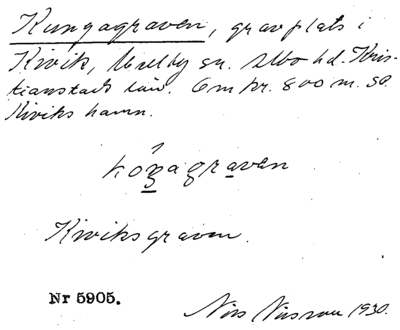 Kungagraven, gravplats i
Kivik, Mellby sn. Albo hd. Kris-
tianstads län. Omkr. 800 m. SO.
Kiviks hamn.
Kiviksgraven.
Nr 5905.
Nils Nilsson 1930.